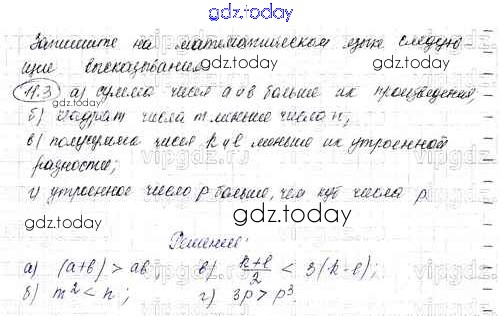 gdz.today
Запишите на математическом языке следую-
щие высказывания
11.3 а) сумма чисел a и b больше их произведения;
б) квадрат числа m меньше числа n;
в) полусумма чисел k и l меньше их утроенной
разности;
г) утроенное число p больше, чем куб числа p.
gdz.today
gdz.today
gdz.today
Решение:
а) (a+b) > ab; в) \frac{k+l}{2} < 3(k-l);
б) m² < n; г) 3p > p³.
gdz.today